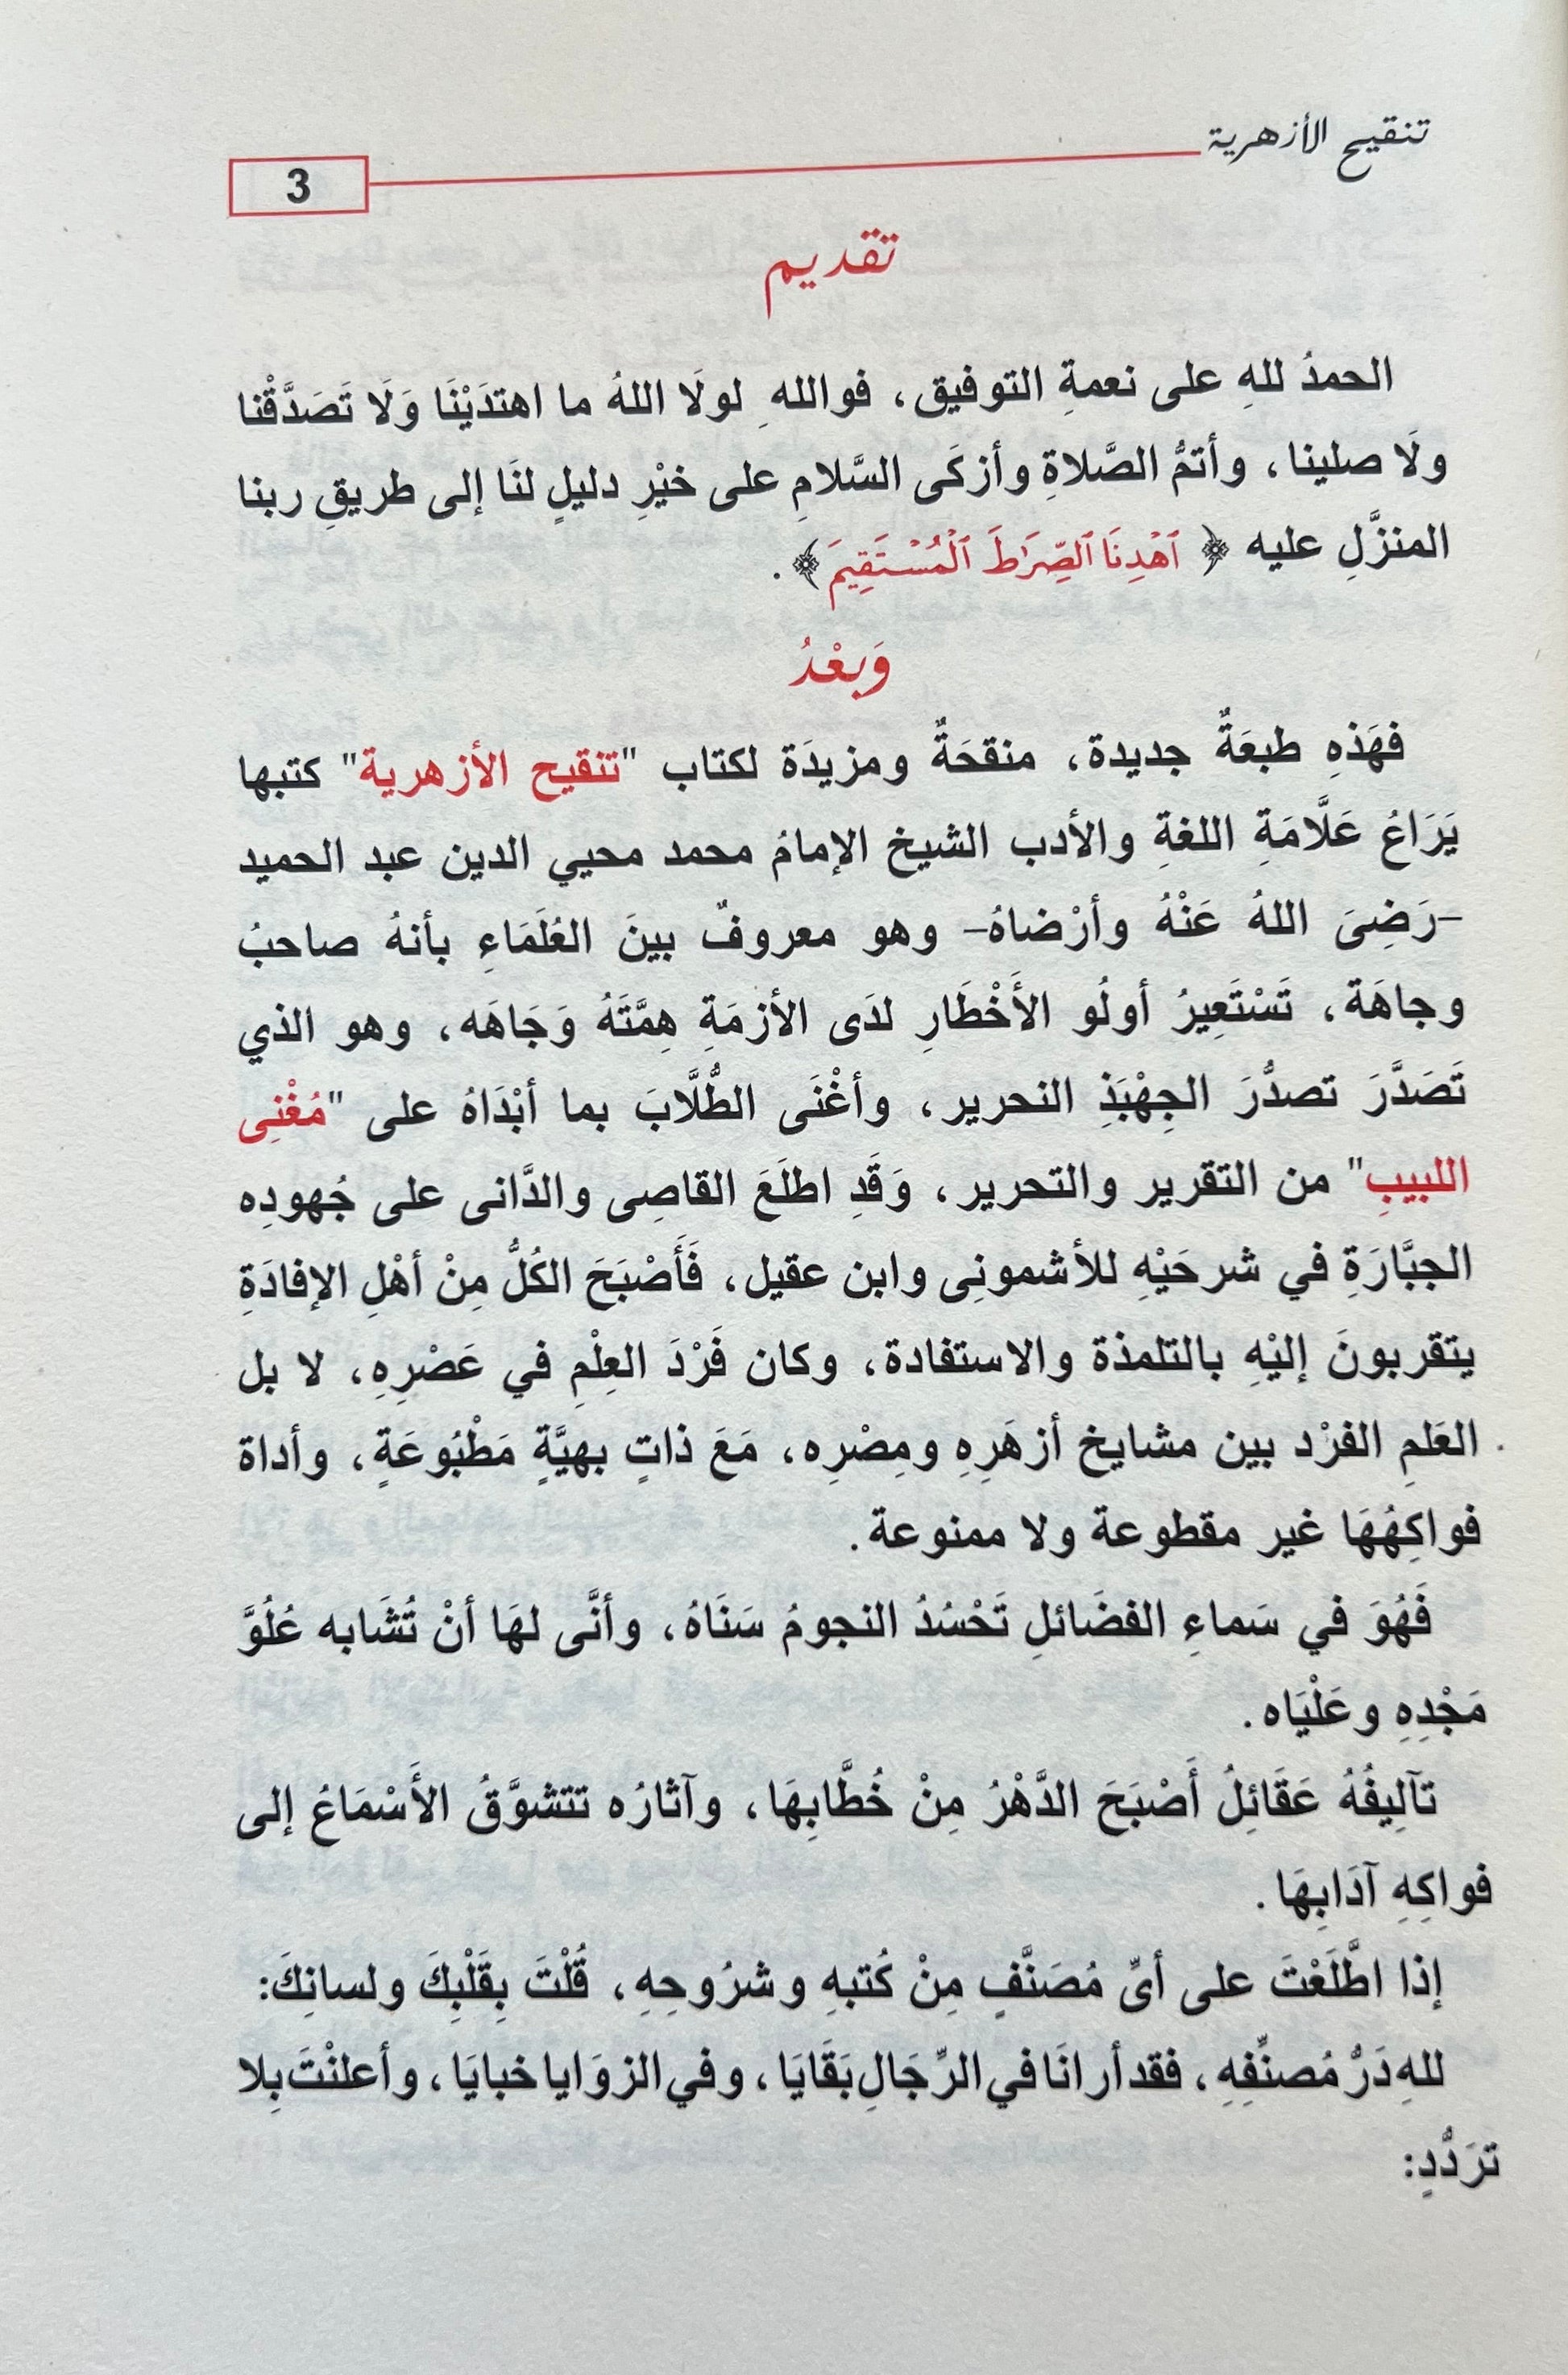 تنقيح الأزهرية
3
تقديم
الحمدُ للهِ على نعمةِ التوفيق، فواللهِ لولَا اللهُ ما اهتدَيْنَا وَلَا تَصَدَّقْنا
ولَا صلينا، وأتمُّ الصَّلاةِ وأزكَى السَّلامِ على خيْرِ دليلٍ لنَا إلى طريقِ ربنا
المنزَّلِ عليه ﴿ ٱهْدِنَا ٱلصِّرَٰطَ ٱلْمُسْتَقِيمَ ﴾.
وَبعْدُ
فهَذهِ طبعَةٌ جديدة، منقحَةٌ ومزيدَة لكتاب "تنقيح الأزهرية" كتبها
يَرَاعُ عَلَّامَةِ اللغةِ والأدب الشيخ الإمامُ محمد محيي الدين عبد الحميد
–رَضِىَ اللهُ عَنْهُ وأرْضاهُ– وهو معروفٌ بينَ العُلَمَاءِ بأنهُ صاحبُ
وجاهَة، تَسْتَعِيرُ أولُو الأَخْطَارِ لدَى الأزمَةِ هِمَّتَهُ وَجَاهَه، وهو الذي
تَصَدَّرَ تصدُّرَ الجِهْبَذِ النحرير، وأغْنَى الطُّلَّابَ بما أبْدَاهُ على "مُغْنِى
اللبيبِ" من التقرير والتحرير، وَقَدِ اطلَعَ القاصِى والدَّانى على جُهودِه
الجبَّارَةِ في شرحَيْهِ للأشمونِى وابن عقيل، فَأَصْبَحَ الكُلُّ مِنْ أهْلِ الإفادَةِ
يتقربونَ إليْهِ بالتلمذة والاستفادة، وكان فَرْدَ العِلْمِ في عَصْرِهِ، لا بل
العَلمِ الفرْد بين مشايخ أزهَرِهِ ومِصْرِه، مَعَ ذاتٍ بهيَّةٍ مَطْبُوعَةٍ، وأداة
فواكِهُهَا غير مقطوعة ولا ممنوعة.
فَهُوَ في سَماءِ الفضَائلِ تَحْسُدُ النجومُ سَنَاهُ، وأنَّى لهَا أنْ تُشَابه عُلُوَّ
مَجْدِهِ وعَلْيَاه.
تآلِيفُهُ عَقَائِلُ أَصْبَحَ الدَّهْرُ مِنْ خُطَّابِهَا، وآثارُه تتشوَّقُ الأَسْمَاعُ إلى
فواكِهِ آدَابِهَا.
إذا اطَّلَعْتَ على أىِّ مُصَنَّفٍ مِنْ كُتبهِ وشرُوحِهِ، قُلْتَ بِقَلْبِكَ ولسانِكَ:
للهِ دَرُّ مُصنِّفِهِ، فقد أرانَا في الرِّجَالِ بَقَايَا، وفي الزوَايا خبايَا، وأعلنْتَ بِلا
ترَدُّدٍ: